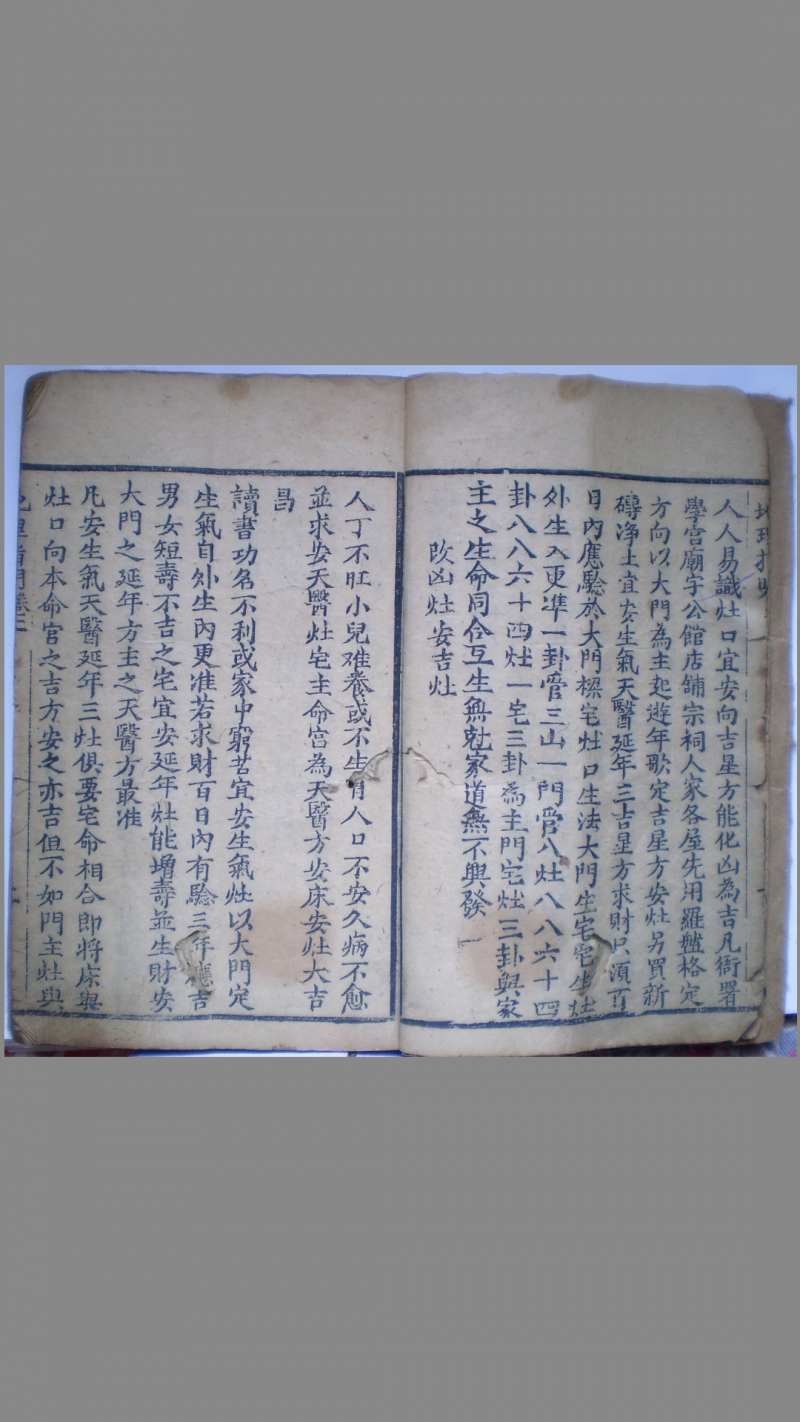 人人易識灶口宜安向吉星方能化凶為吉凡衙署
學宮廟宇公館店舖宗祠人家各屋先用羅盤格定
方向以大門為主起遊年歌定吉星方安灶另買新
磚净土宜安生氣天醫延年三吉星方求財只須百
日內應騐於大門樑宅灶口生法大門生宅宅生灶
外生入更準一卦管三山一門管八灶八八六十四
卦八八六十四灶一宅三卦為主門宅灶三卦與家
主之生命同合互生無尅家道無不興發
改凶灶安吉灶
人丁不旺小兒难養或不生育人口不安久病不愈
並求安天醫灶宅主命宫為天醫方安床安灶大吉
昌
讀書功名不利或家中窮苦宜安生氣灶以大門定
生氣自外生內更准若求財百日內有騐三年應吉
男女短壽不吉之宅宜安延年灶能增壽並生財安
大門之延年方主之天醫方最准
凡安生氣天醫延年三灶俱要宅命相合即将床與
灶口向本命宫之吉方安之亦吉但不如門主灶與